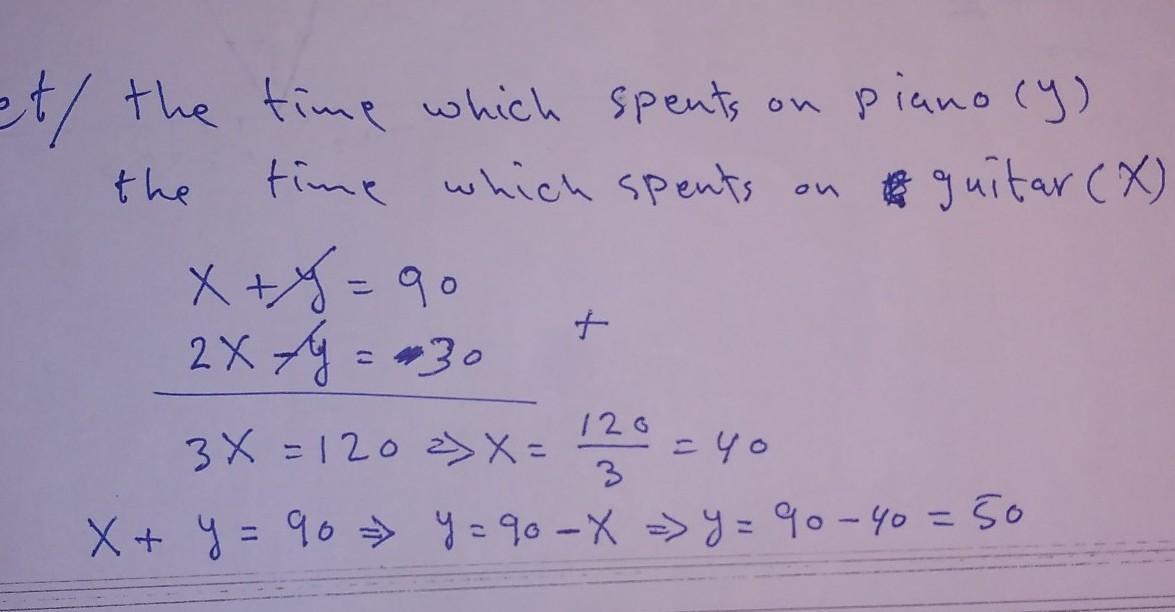 et/ the time which spents on piano (y)
the time which spents on guitar (X)
X + y = 90
+
2X - y = 30
3X = 120 => X = 120/3 = 40
X + y = 90 => y = 90 - X => y = 90 - 40 = 50